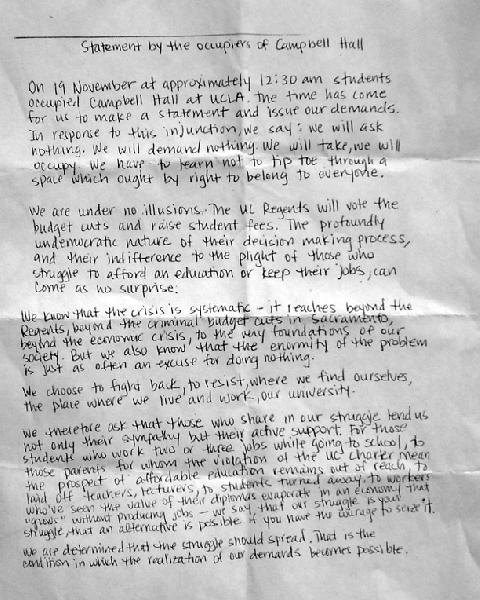 Statement by the occupiers of Campbell Hall
On 19 November at approximately 12:30 am students
occupied Campbell Hall at UCLA. The time has come
for us to make a statement and issue our demands.
In response to this injunction, we say: we will ask
nothing. We will demand nothing. We will take, we will
occupy. We have to learn not to tip toe through a
space which ought by right to belong to everyone.
We are under no illusions. The UC Regents will vote the
budget cuts and raise student fees. The profoundly
undemocratic nature of their decision making process,
and their indifference to the plight of those who
struggle to afford an education or keep their jobs, can
come as no surprise.
We know that the crisis is systematic - it reaches beyond the
Regents, beyond the criminal budget cuts in Sacramento,
beyond the economic crisis, to the very foundations of our
society. But we also know that the enormity of the problem
is just as often an excuse for doing nothing.
We choose to fight back, to resist, where we find ourselves,
the place where we live and work, our university.
We therefore ask that those who share in our struggle lend us
not only their sympathy but their active support. For those
students who work two or three jobs while going to school, to
those parents for whom the violation of the UC charter mean
the prospect of affordable education remains out of reach, to
laid off teachers, lecturers, to students turned away, to workers
who've seen the value of their diplomas evaporate in an economy that
"grows" without producing jobs - we say that our struggle is your
struggle, that an alternative is possible if you have the courage to seize it.
We are determined that the struggle should spread. That is the
condition in which the realization of our demands becomes possible.